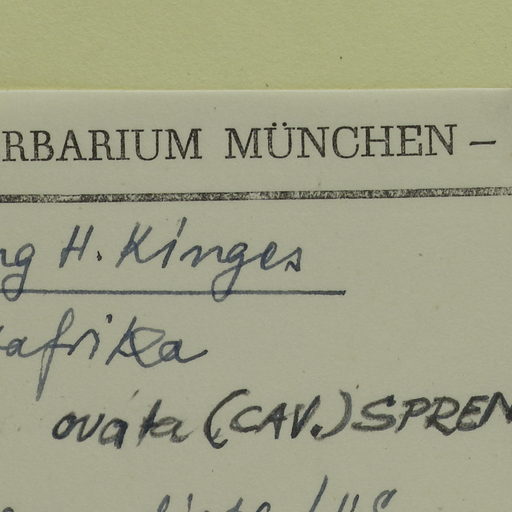 RBARIUM MÜNCHEN –
ng H. Kinges
afrika
ovata (CAV.) SPREN